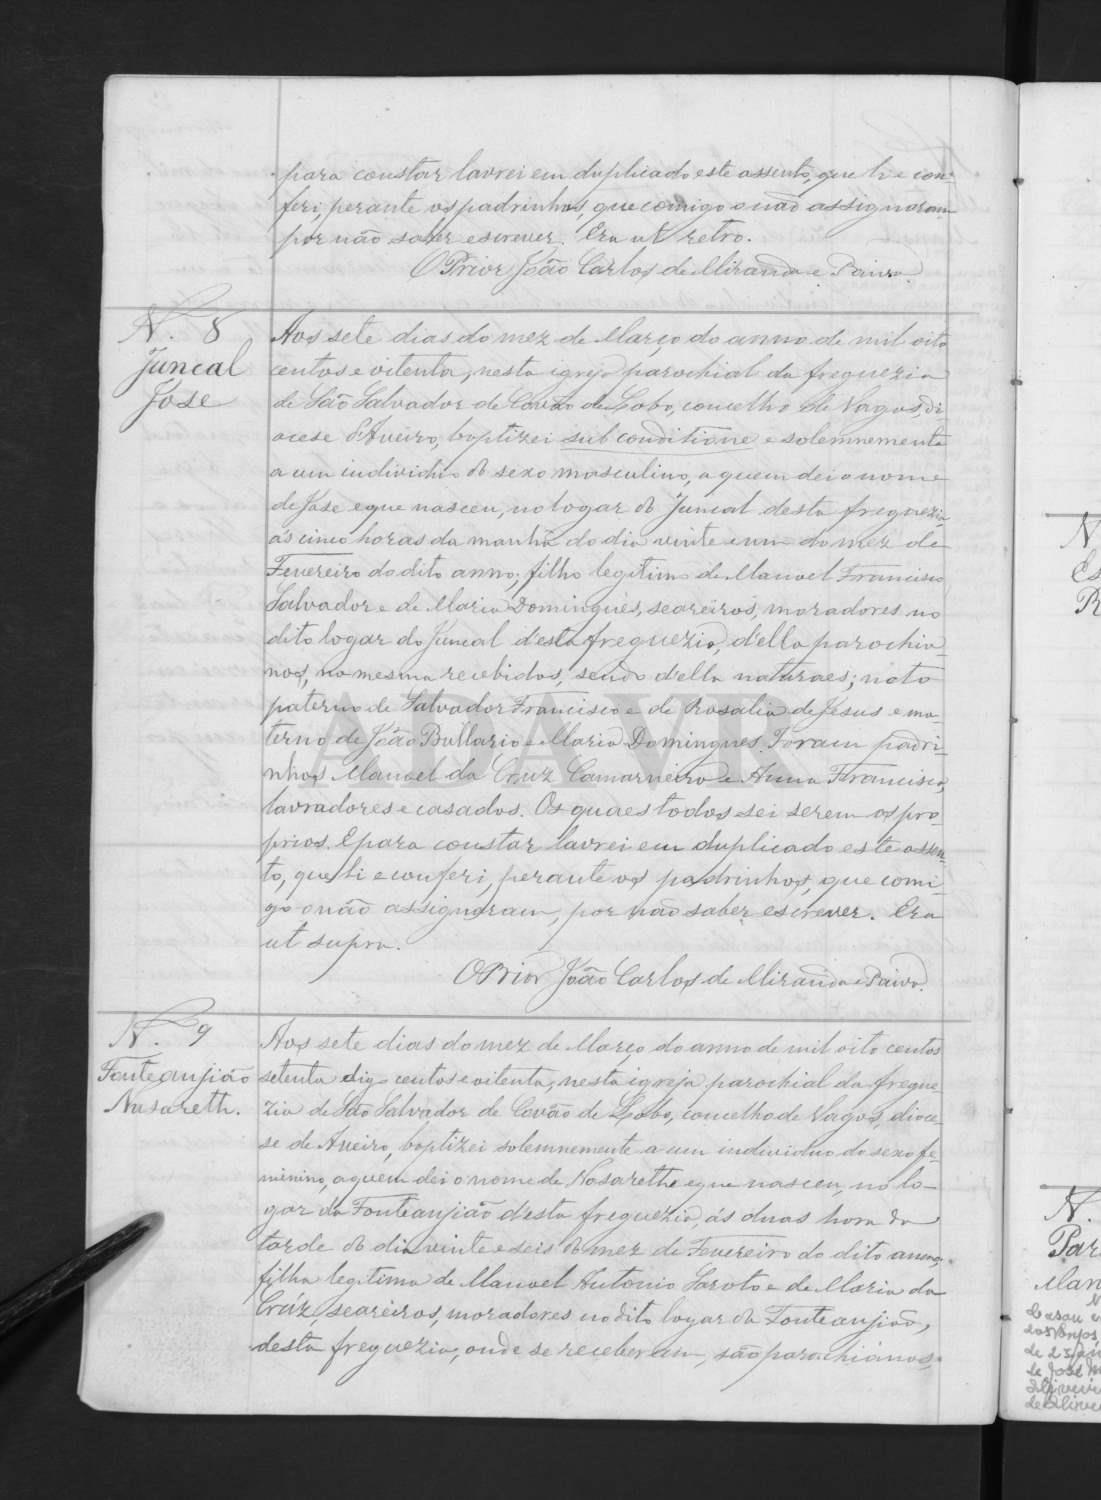 para constar lavrei em duplicado este assento, que li e con-
feri, perante os padrinhos, que comigo o não assignaram
por não saber escrever. Era ut retro.
O Prior João Carlos de Miranda e Paiva.
N. 8
Juncal
Jose
Aos sete dias do mez de Março do anno de mil oito
centos e oitenta, nesta igreja parochial da freguezia
de São Salvador de Covão de Lobo, concelho de Vagos, di-
ocese d'Aveiro, baptizei sub conditione e solemnemente
a um individuo do sexo masculino, a quem dei o nome
de Jose e que nasceu, no logar do Juncal desta freguezia,
ás cinco horas da manhã do dia vinte e um do mez de
Fevereiro do dito anno; filho legitimo de Manoel Francisco
Salvador e de Maria Domingues, seareiros, moradores no
dito logar do Juncal d'esta freguezia, d'ella parochia-
nos, na mesma recebidos, sendo d'ella naturaes; neto
paterno de Salvador Francisco e de Rosalia de Jesus e ma-
terno de João Bullario e Maria Domingues. Foram padri-
nhos Manoel da Cruz Camarneiro e Anna Francisca,
lavradores e casados. Os quaes todos sei serem os pro-
prios. E para constar lavrei em duplicado este assen-
to, que li e conferi, perante os padrinhos, que comi-
go o não assignaram, por não saber escrever. Era
ut supra.
O Prior João Carlos de Miranda e Paiva.
N. 9
Fonteanjião
Nasareth.
Aos sete dias do mez de Março do anno de mil oito centos
setenta digo centos e oitenta, nesta igreja parochial da fregue-
zia de São Salvador de Covão de Lobo, concelho de Vagos, dioce-
se de Aveiro, baptizei solemnemente a um individuo do sexo fe-
minino, a quem dei o nome de Nasarethe e que nasceu, no lo-
gar da Fonteanjião d'esta freguezia, ás duas hora da
tarde do dia vinte e seis do mez de Fevereiro do dito anno,
filha legitima de Manoel Antonio Saroto e de Maria da
Cruz, seareiros, moradores no dito logar da Fonteanjião,
desta freguezia, onde se receberam, são parochianos,
ADAVR
N.
Es
R
N.
Par
Man